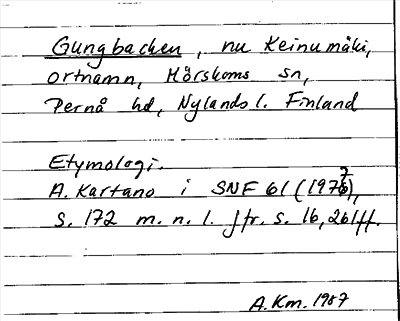 Gungbacken, nu Keinumäki,
ortnamn, Mörskoms sn,
Pernå hd, Nylands l. Finland
Etymologi.
A. Kartano i SNF 61 (1977),
s. 172 m. n. l. Jfr. s. 16, 261 ff.
A. Km. 1987